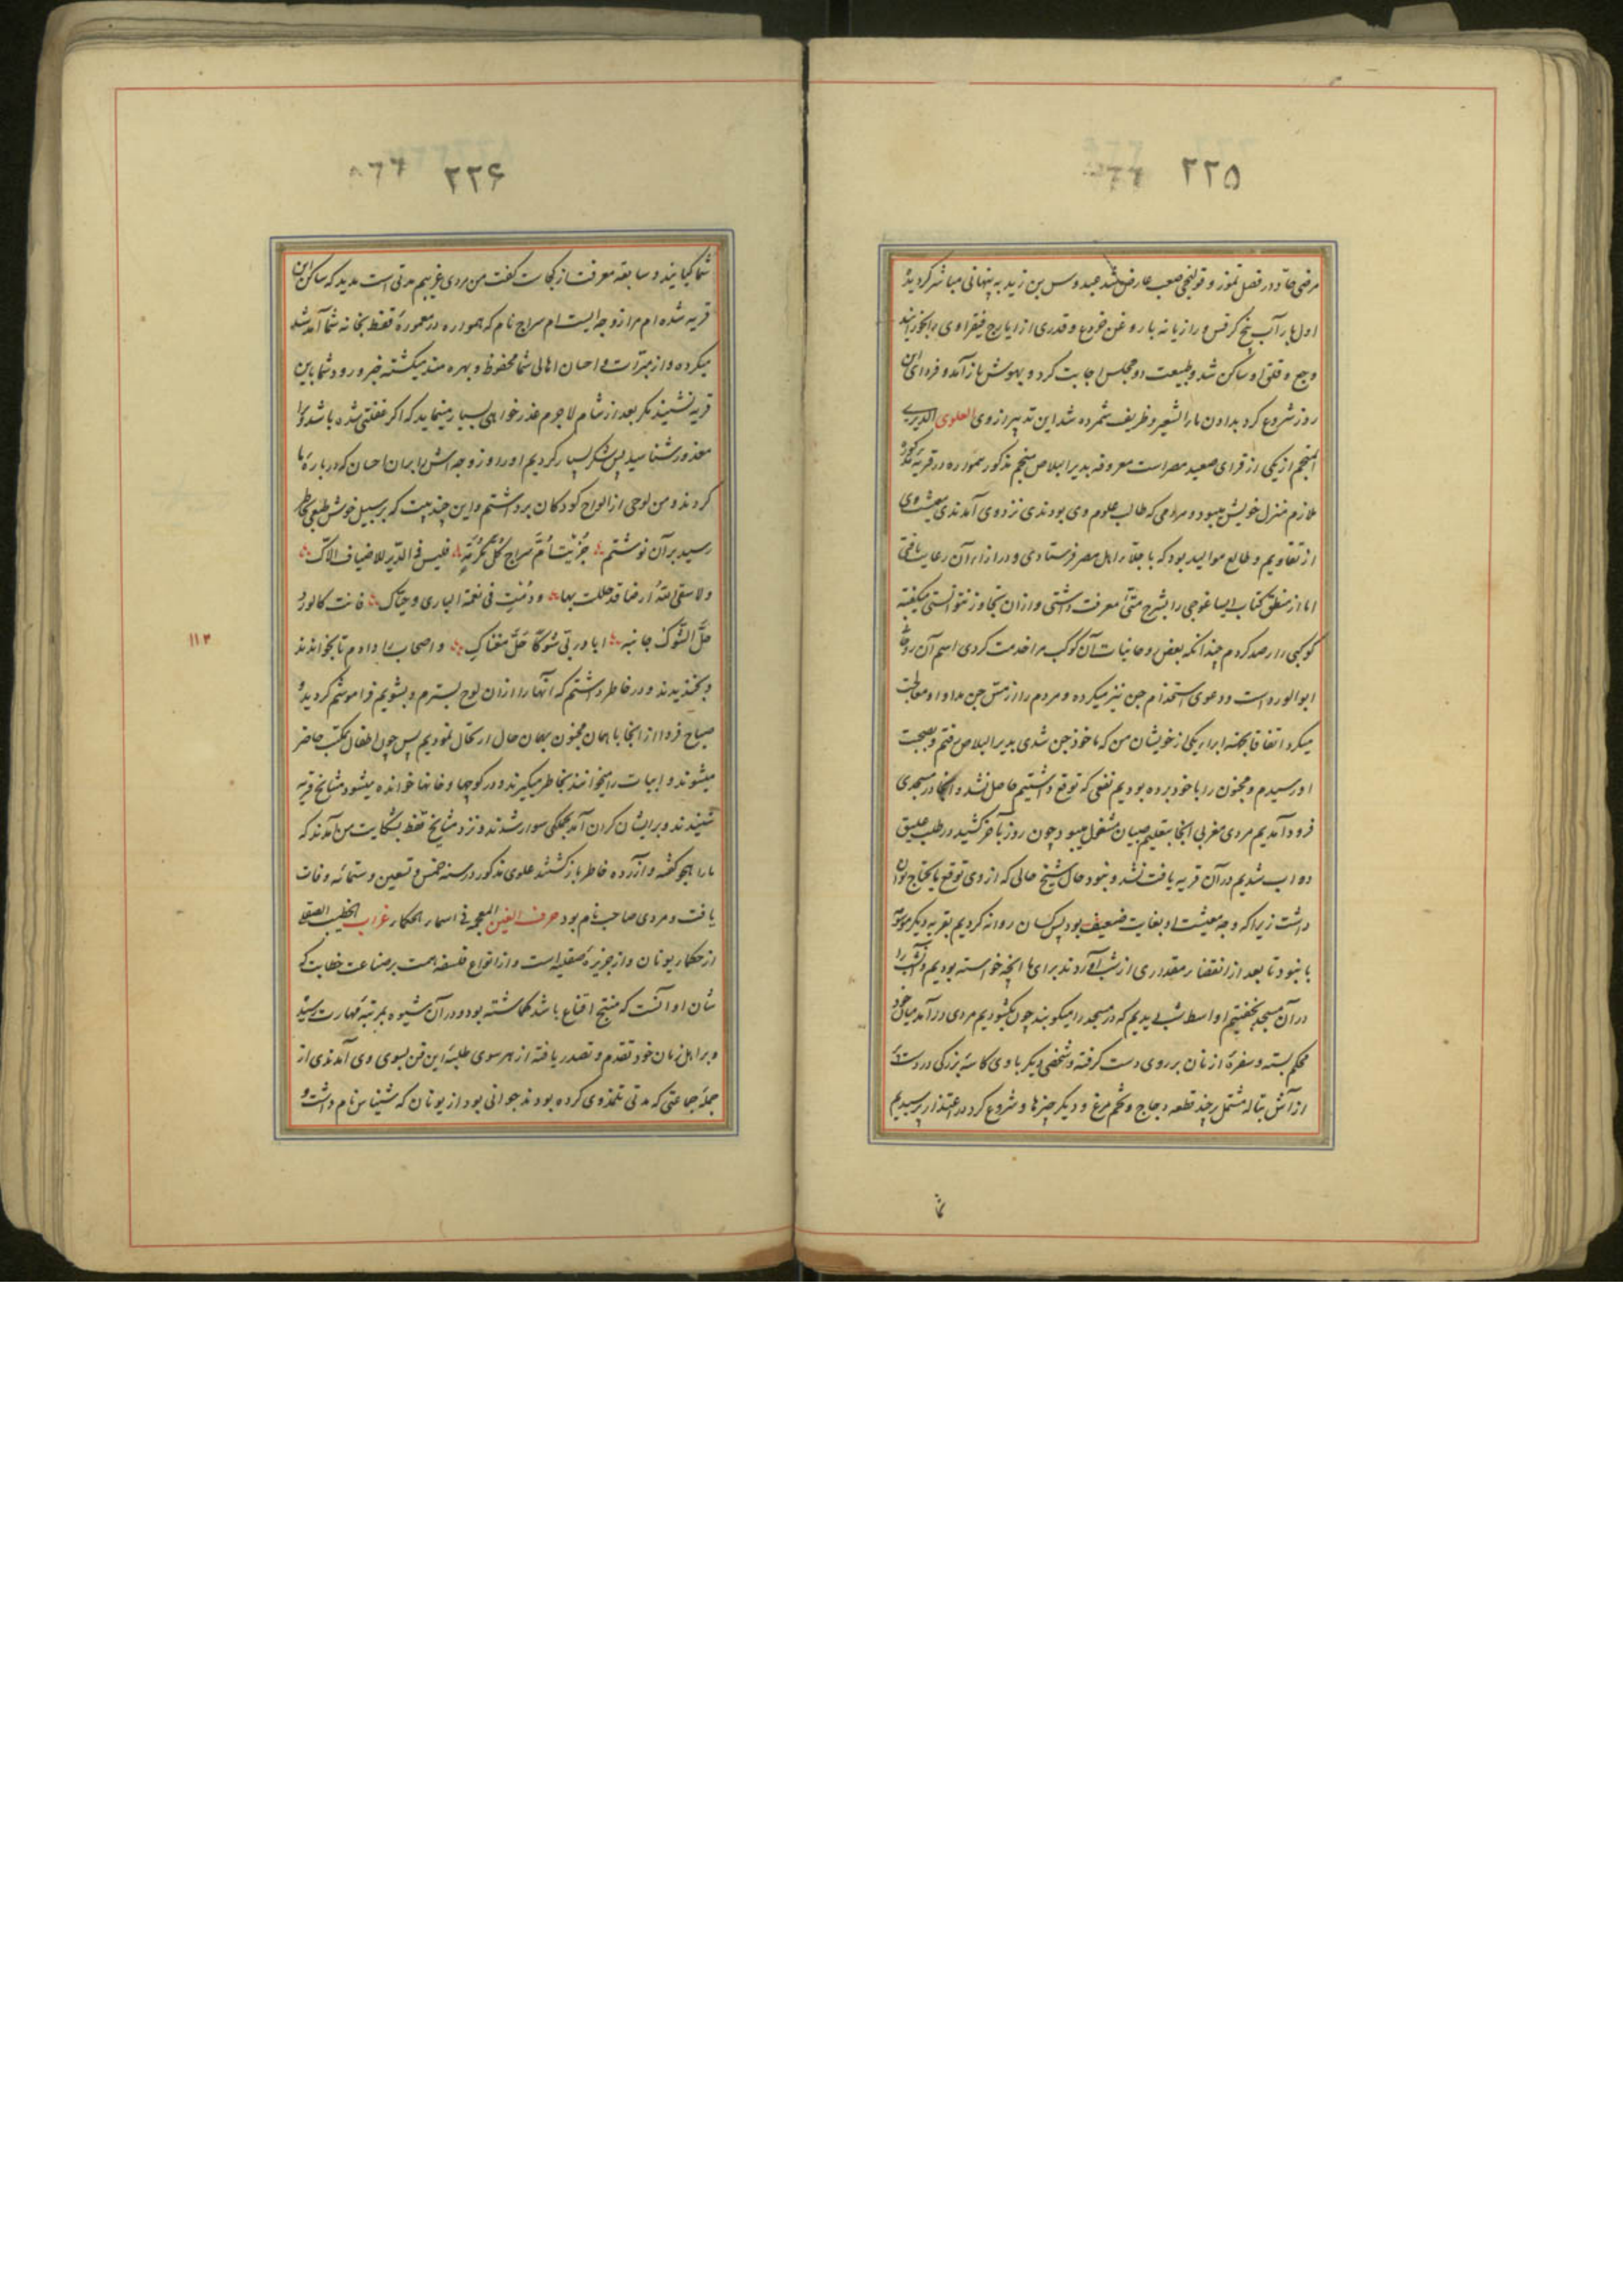 ۲۲۵
مرضی حاد در فصل تموز و قولنجی صعب عارض شد عبدوس بن زید به پنهانی مباشر گردیده
اول بار آب بیخ کرفس و رازیانه با روغن خروع و قدری از ایارج فیقرا وی را بخورانید
وجع و قلق او ساکن شد و طبیعت دو مجلس اجابت کرد و بهوش باز آمد و فردای آن
روز شروع کرد بدادن ماء الشعیر و ظریف شمرده شد این تدبیر از وی العلوی الدیری
المنجم از یکی از قرای صعید مصر است معروفه بدیر البلاص منجم مذکور همواره در قریه مذکوره
ملازم منزل خویش میبود و مردمی که طالب علوم وی بودندی نزد وی آمدندی معیشت وی
از تقاویم و طالع موالید بود که باجلاء اهل مصر فرستادی و در ازاء آن رعایت یافتی
اما از منطق کتاب ایساغوجی را بشرح متی معرفت داشتی و از آن تجاوز نتوانستی میگفته
کوکبی را رصد کردم چندانکه بعض روحانیات آن کوکب مرا خدمت کردی اسم آن روحانی
ابو الورد است و دعوی استخدام جن نیز میکرده و مردم را از مس جن مداوا و معالجت
میکرد اتفاقا بجهة ابراء یکی از خویشان من که ماخوذ جن شدی بدیر البلاص رفتم و بصحبت
او رسیدم و مجنون را با خود برده بودیم نفعی که توقع داشتیم حاصل نشد و آنجا در مسجدی
فرود آمدیم مردی مغربی آنجا بتعلیم صبیان مشغول میبود چون روز بآخر کشید در طلب علیق
دواب شدیم در آن قریه یافت نشد و نبود حال شیخ حالی که از وی توقع مایحتاج توان
داشت زیرا که وجه معیشت او بغایت ضعیف بود پس کسان روانه کردیم بقریه دیگر
ما نبود تا بعد از انقضاء مقداری از شب آوردند برای ما آنچه خواسته بودیم و آنشب را
در آن مسجد بخفتیم اواسط شب دیدیم که در مسجد را میکوبند چون بگشودیم مردی درآمد میان خود
محکم بسته و سفره از نان بر روی دست گرفته و شخصی دیگر با وی کاسه بزرگی در دست
از آش بتاله مشتمل بر چند قطعه دجاج و تخم مرغ و دیگر چیزها و شروع کرد در اعتذار پرسیدیم
شما
۲۲۶
شما کیانید و سابقه معرفت از کجاست گفت من مردی غریبم مدتی است مدید که ساکن این
قریه شده ام مرا زوجه ایست ام سراج نام که همواره در معموره قفط بخانه شما آمد شد
میکرده و از مبرات و احسان اهالی شما محفوظ و بهره مند میگشته خبر ورود شما باین
قریه نشنید مگر بعد از شام لاجرم عذر خواهی بسیار مینماید که اگر غفلتی شده باشد او را
معذور شناسید پس شکر بسیار کردیم او را و زوجه اش را بر آن احسان که درباره ما
کردند و من لوحی از الواح کودکان برداشتم و این چند بیت که بر سبیل خوش طبعی بخاطر
رسید بر آن نوشتم جُزیت أمّ سراج کُلّ مکرُمَةٍ فلیس فی الدیر للاضیاف الاک
ولا سقی اللهُ ارضا قد حللت بها ودُمتِ فی نعمة الباری وحیاک فانت کالوردُ
حلّ الشوک جانبه ابا ورد بی شوکا حلّ مغناک و اصحاب را دادم تا بخواندند
و بخندیدند و در خاطر داشتم که آنها را از آن لوح بسترم و بشویم فراموشم گردیده
صباح فردا از آنجا با همان مجنون بهمان حال ارتحال نمودیم پس چون اطفال مکتب حاضر
میشوند و ابیات را میخوانند بخاطر میگیرند و در کوچها و خانها خوانده میشود مشایخ قریه
شنیدند و بر ایشان گران آمد بجملگی سوار شدند و نزد مشایخ قفط بشکایت من آمدند که
ما را هجو گفته و آزرده خاطر بازگشتند علوی مذکور در سنه خمس و تسعین و ستمائه وفات
یافت و مردی صاحب نام بود حرف الغین المعجمه فی اسماء الحکماء غراب الخطیب الصقلی
از حکماء یونان و از جزیره صقلیه است و از انواع فلسفه همت بر صناعت خطابت که
شأن او آنست که منتج اقناع باشد گماشته بود و در آن شیوه بمرتبه مهارت رسید
و بر اهل زمان خود تقدم و تصدر یافته از هر سوی طلبه این فن بسوی وی آمدندی از
جمله جماعتی که مدتی تلمذ وی کرده بودند جوانی بود از یونان که شیناس نام داشت و
۱۱۳